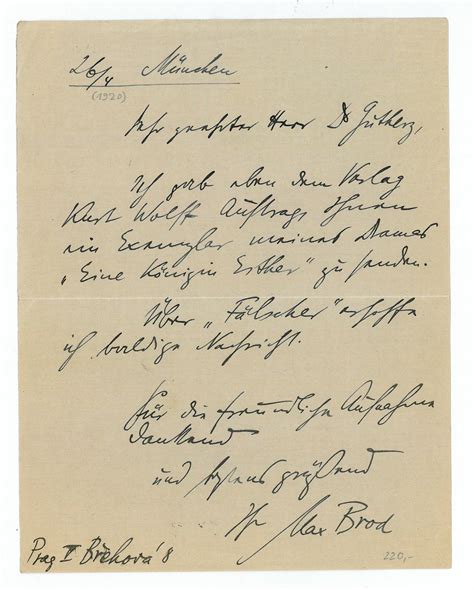 26/4 München
(1920)
Sehr geehrter Herr Dr Gutherz,
Ich gab eben dem Verlag
Kurt Wolff Auftrag, Ihnen
ein Exemplar meines Dramas
„Eine Königin Esther" zu senden.
Über „Fälscher" erhoffe
ich baldige Nachricht.
Für die freundliche Aufnahme
dankend
und bestens grüßend
Ihr Max Brod
Prag V Břehová 8
220,-